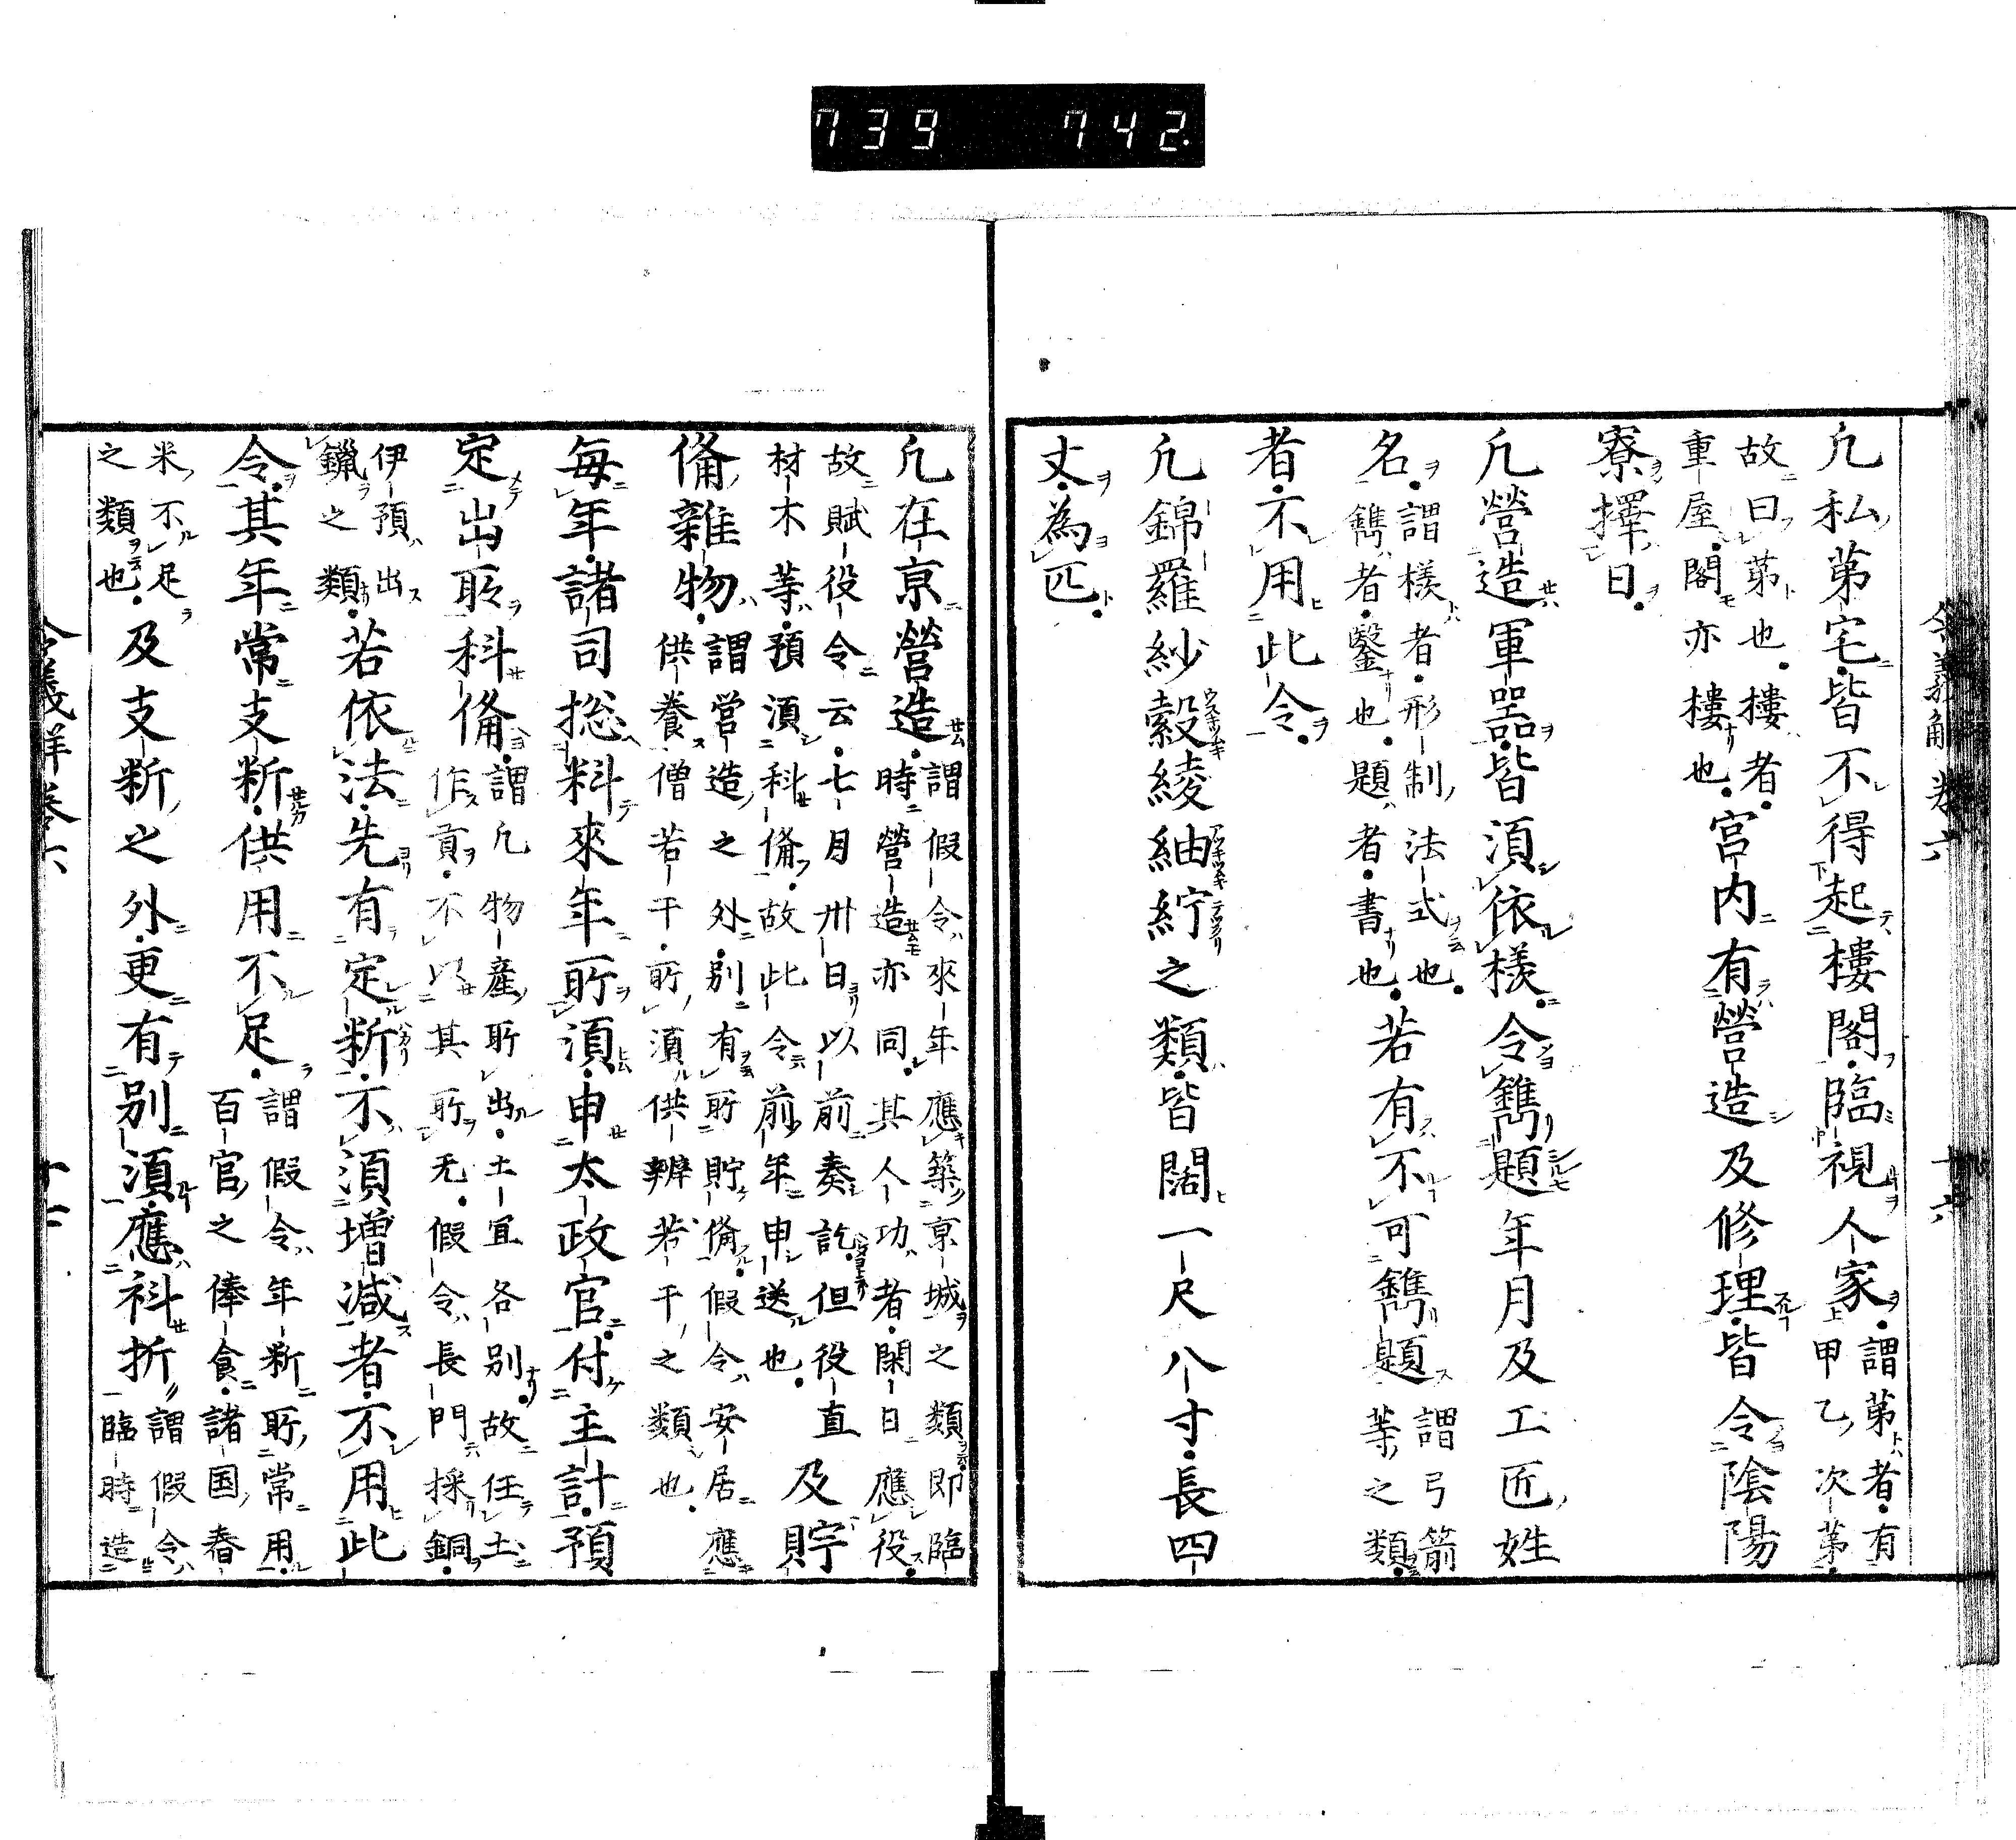 739 742.
令義解卷六 十六
凢私苐宅皆不得起樓閣臨視人家謂苐者有甲乙次苐
故曰苐也樓者重屋閣亦樓也宮内有營造及修理皆令陰陽
寮擇日
凢營造軍器皆湏依樣令鐫題年月及工匠姓
名謂樣者形制法式也鐫者鑿也題者書也若有不可鐫題謂弓箭䒭之類
者不用此令
凢錦羅紗縠綾紬紵之類皆闊一尺八寸長四
丈為匹
凢在京營造謂假令來年應築京城之類即臨時營造亦同其人功者閑日應役
故賦役令云七月卅日以前奏訖但役直材木等預湏科備故此令前年申送也及貯
備雜物謂營造之外別有所貯備假令安居應供養僧若干所湏供辨若干之類也
每年諸司総料來年所湏申太政官付主計預
定出所科備謂凢物產所出土宜各別故任土作貢不以其所无假令長門採銅
伊預出鑞之類若依法先有定䉼不湏增减者不用此
令其年常支䉼供用不足謂假令年䉼所常用百官之俸食諸国舂
米不足之類也及支䉼之外更有別湏應科折謂假令臨時造
令義解卷六